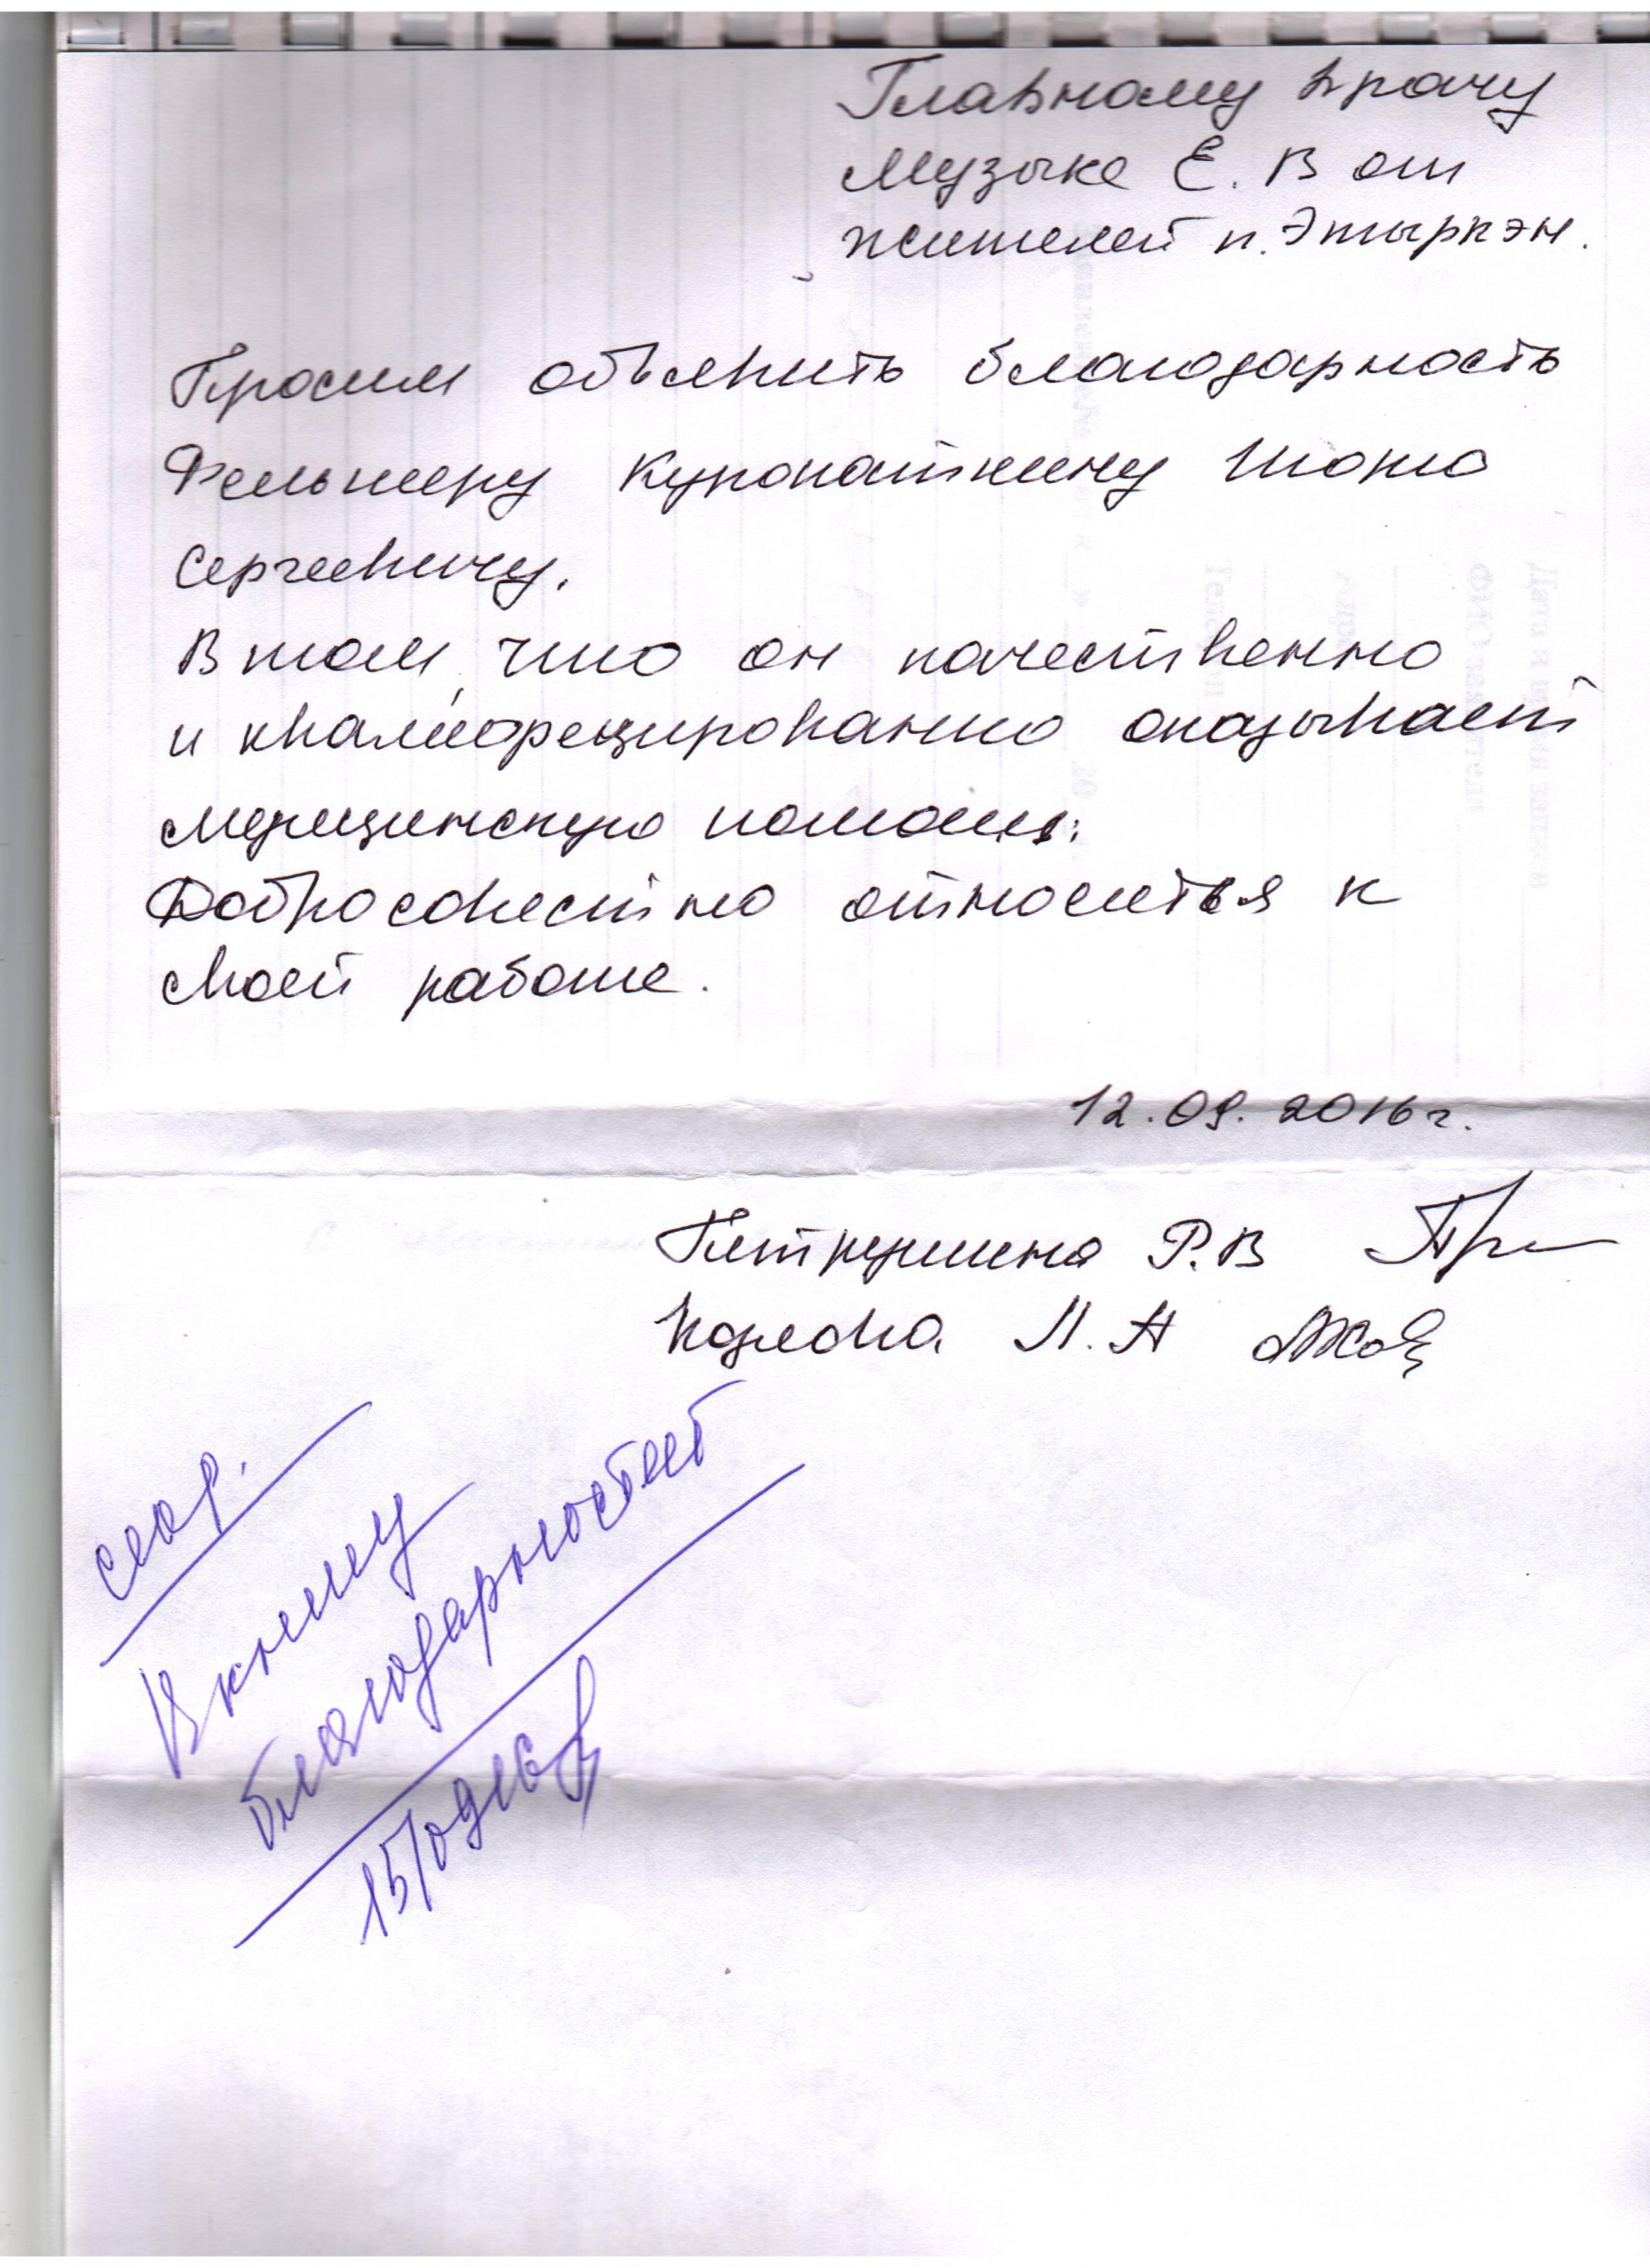 Главному врачу
Музыке Е. В от
жителей п. Этыркэн.
Просим объявить благодарность
Фельдшеру Куропаткину
Сергеевичу.
В том, что он качественно
и квалифецированно оказывает
медицинскую помощь.
Добросовестно относиться к
своей работе.
12.09.2016 г.
Петрушина Р. В
Л. А
В книгу
благодарностей
15/09